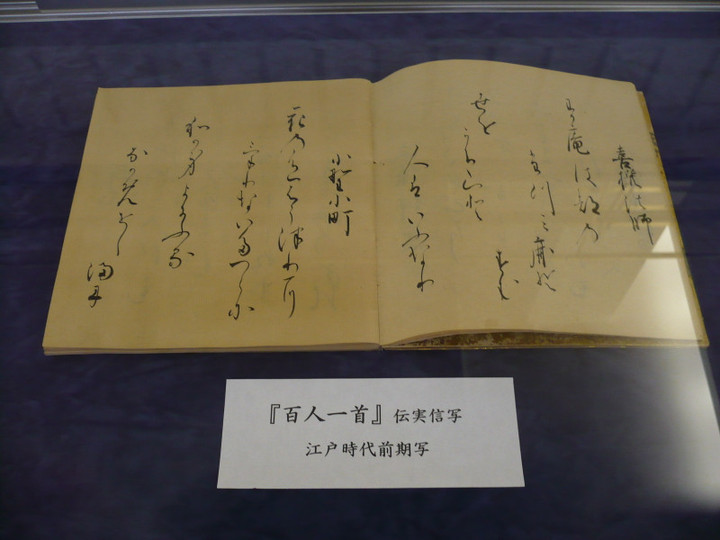 喜撰法師
わか庵は都の
たつみしかそ
すむ
世を
うち山と
人はいふなり
小野小町
花のいろはうつりに
けりないたつらに
わか身よにふる
なかめせし
まに
『百人一首』伝実信写
江戸時代前期写